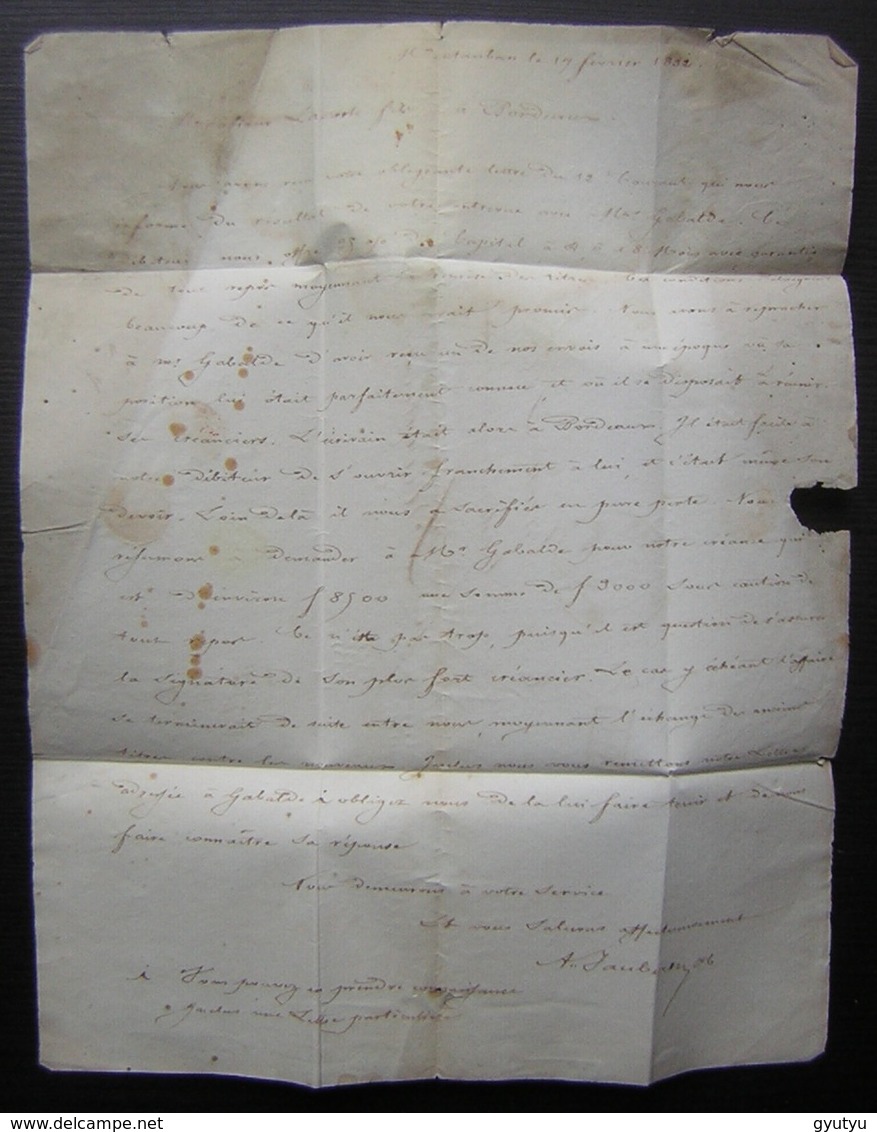 Montauban le 19 février 1832.
Monsieur Lacoste fils à Bordeaux
Nous avons reçu votre obligeante lettre du 12 courant qui nous
informe du résultat de votre entrevue avec Mr Gabalde. Ce
débiteur nous offre 25 % du Capital à & à 18 mois avec garantie
de tout repos moyennant la remise des titres. Ces conditions
beaucoup de ce qu'il nous avait promis. Nous avons à reprocher
à Mr Gabalde d'avoir reçu un de nos envois à une époque où sa
position lui était parfaitement connue et où il se disposait à réunir
ses créanciers. L'écrivain était alors à Bordeaux. Il était facile à
notre débiteur de s'ouvrir franchement à lui, et c'était même son
devoir. Loin delà il nous a sacrifiés en pure perte. Nous
résumons à demander à Mr Gabalde pour notre créance qui
est d'environ f 8500 une somme de f 3000 sous caution de
tout repos. Ce n'est pas trop, puisqu'il est question de s'assurer
la signature de son plus fort créancier. Le cas y échéant l'affaire
se terminerait de suite entre nous, moyennant l'échange des anciens
titres contre les nouveaux. Inclus nous vous remettons notre Lettre
adressée à Gabalde & obligez nous de la lui faire tenir et de nous
faire connaître sa réponse
Nous demeurons à votre service
Et vous saluons affectueusement
A. Jaubert
Vous pouvez en prendre connaissance
Inclus une Lettre particulière
gyutyu